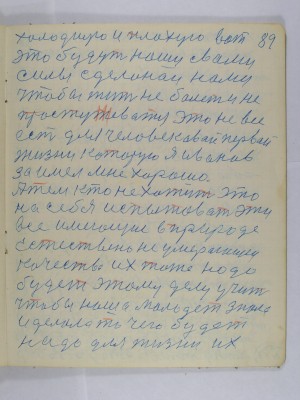 холодную и плохую вот 89
это будут нашы с вами
силы сделонаи нами
чтобы жить не болеть и не
простуживатся Это не все
ест для человека вай первай
жизни которую Я Иванов
заимел мне хорошо.
Атем кто не хотит это
на себя испытоват эти
все имеющие в природе
естествено не умерающего
качества их тоже надо
будет этому делу учит
чтобы наша молодеж знала
и делала то чего будет
надо для жизни их